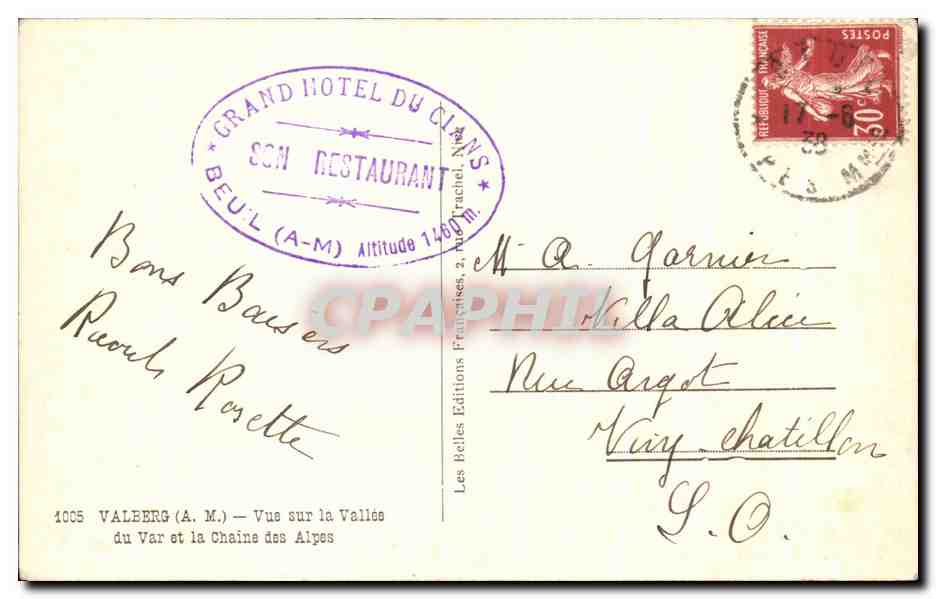 ★ GRAND HOTEL DU CIANS ★
SON RESTAURANT
BEUIL (A-M) Altitude 1460 m.
Bons Baisers
Raoul Rosette
1005 VALBERG (A. M.) — Vue sur la Vallée
du Var et la Chaîne des Alpes
Les Belles Editions Françaises, 2, rue Trachel, Nice
REPUBLIQUE FRANÇAISE
POSTES
30 c
17 - 6
38
Mr A. Garnier
Villa Alice
Rue Argot
Viry-Chatillon
S. O.
CPAPHIL